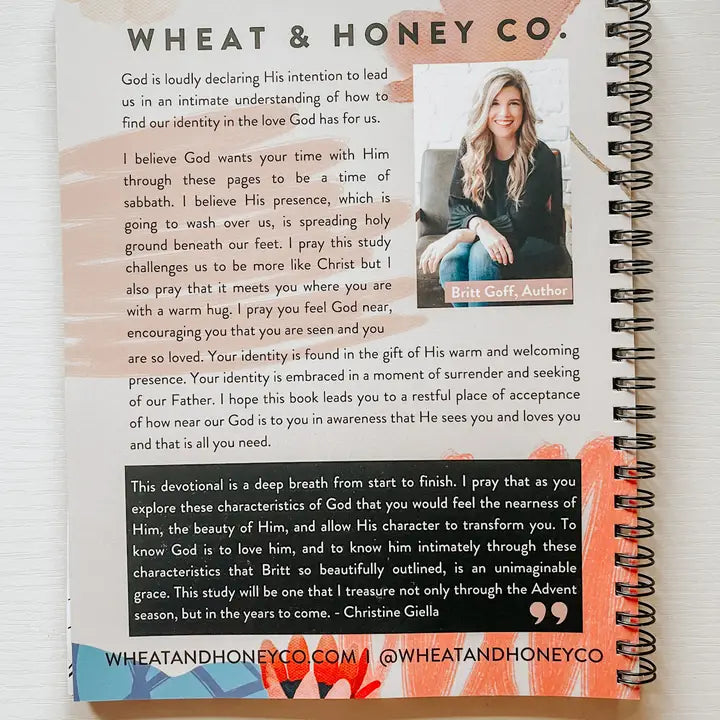 WHEAT & HONEY CO.
God is loudly declaring His intention to lead
us in an intimate understanding of how to
find our identity in the love God has for us.
I believe God wants your time with Him
through these pages to be a time of
sabbath. I believe His presence, which is
going to wash over us, is spreading holy
ground beneath our feet. I pray this study
challenges us to be more like Christ but I
also pray that it meets you where you are
with a warm hug. I pray you feel God near,
encouraging you that you are seen and you
are so loved. Your identity is found in the gift of His warm and welcoming
presence. Your identity is embraced in a moment of surrender and seeking
of our Father. I hope this book leads you to a restful place of acceptance
of how near our God is to you in awareness that He sees you and loves you
and that is all you need.
Britt Goff, Author
This devotional is a deep breath from start to finish. I pray that as you
explore these characteristics of God that you would feel the nearness of
Him, the beauty of Him, and allow His character to transform you. To
know God is to love him, and to know him intimately through these
characteristics that Britt so beautifully outlined, is an unimaginable
grace. This study will be one that I treasure not only through the Advent
season, but in the years to come. - Christine Giella
”
WHEATANDHONEYCO.COM | @WHEATANDHONEYCO